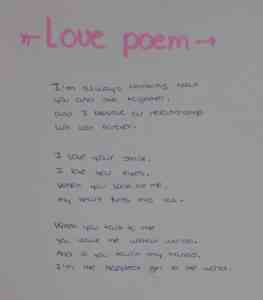 Love poem
I'm always thinking that
you and me together,
and I believe our relationship
will last forever.
I love your smile,
I love your eyes,
When you look at me,
my heart turns into ice.
When you talk to me
you leave me without words.
And if you touch my hands,
I'm the happiest girl in the world.